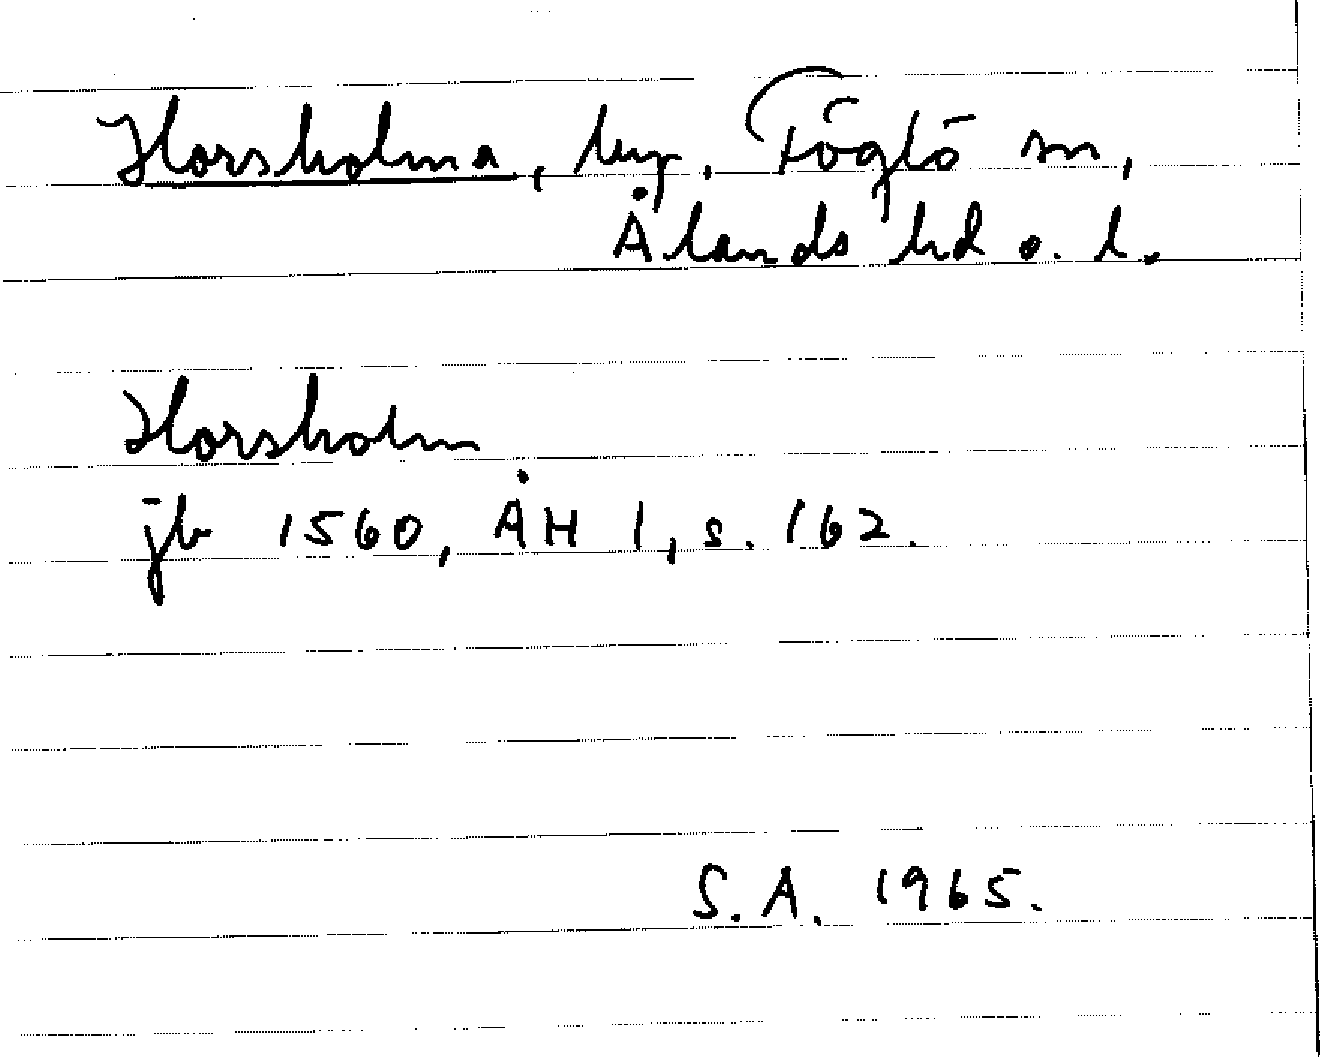 Horsholma, by, Föglö sn,
Ålands hd o. l.
Horsholm
jb 1560, ÅH 1, s. 162.
S.A. 1965.